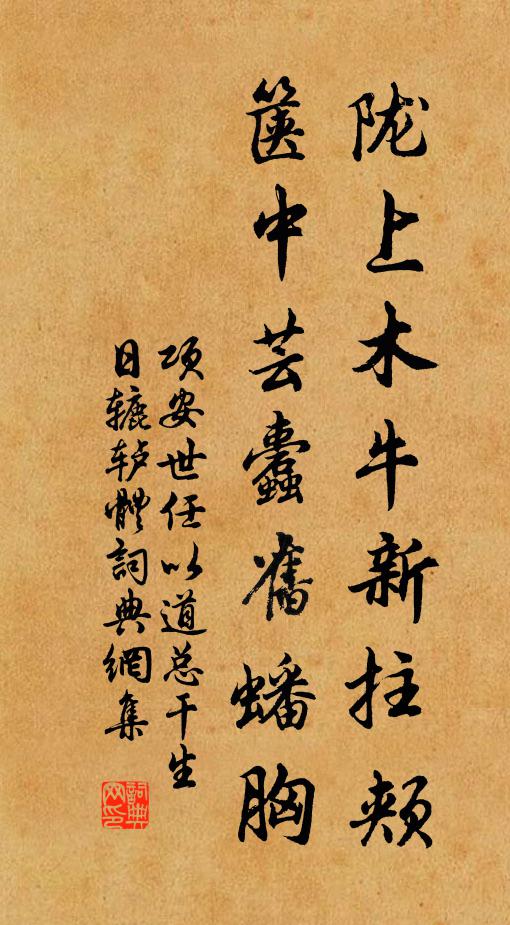 陇上木牛新拄颊
箧中芸蠹舊蟠胸
项安世任以道总干生
日辘轳體詞典網集
詞典网印